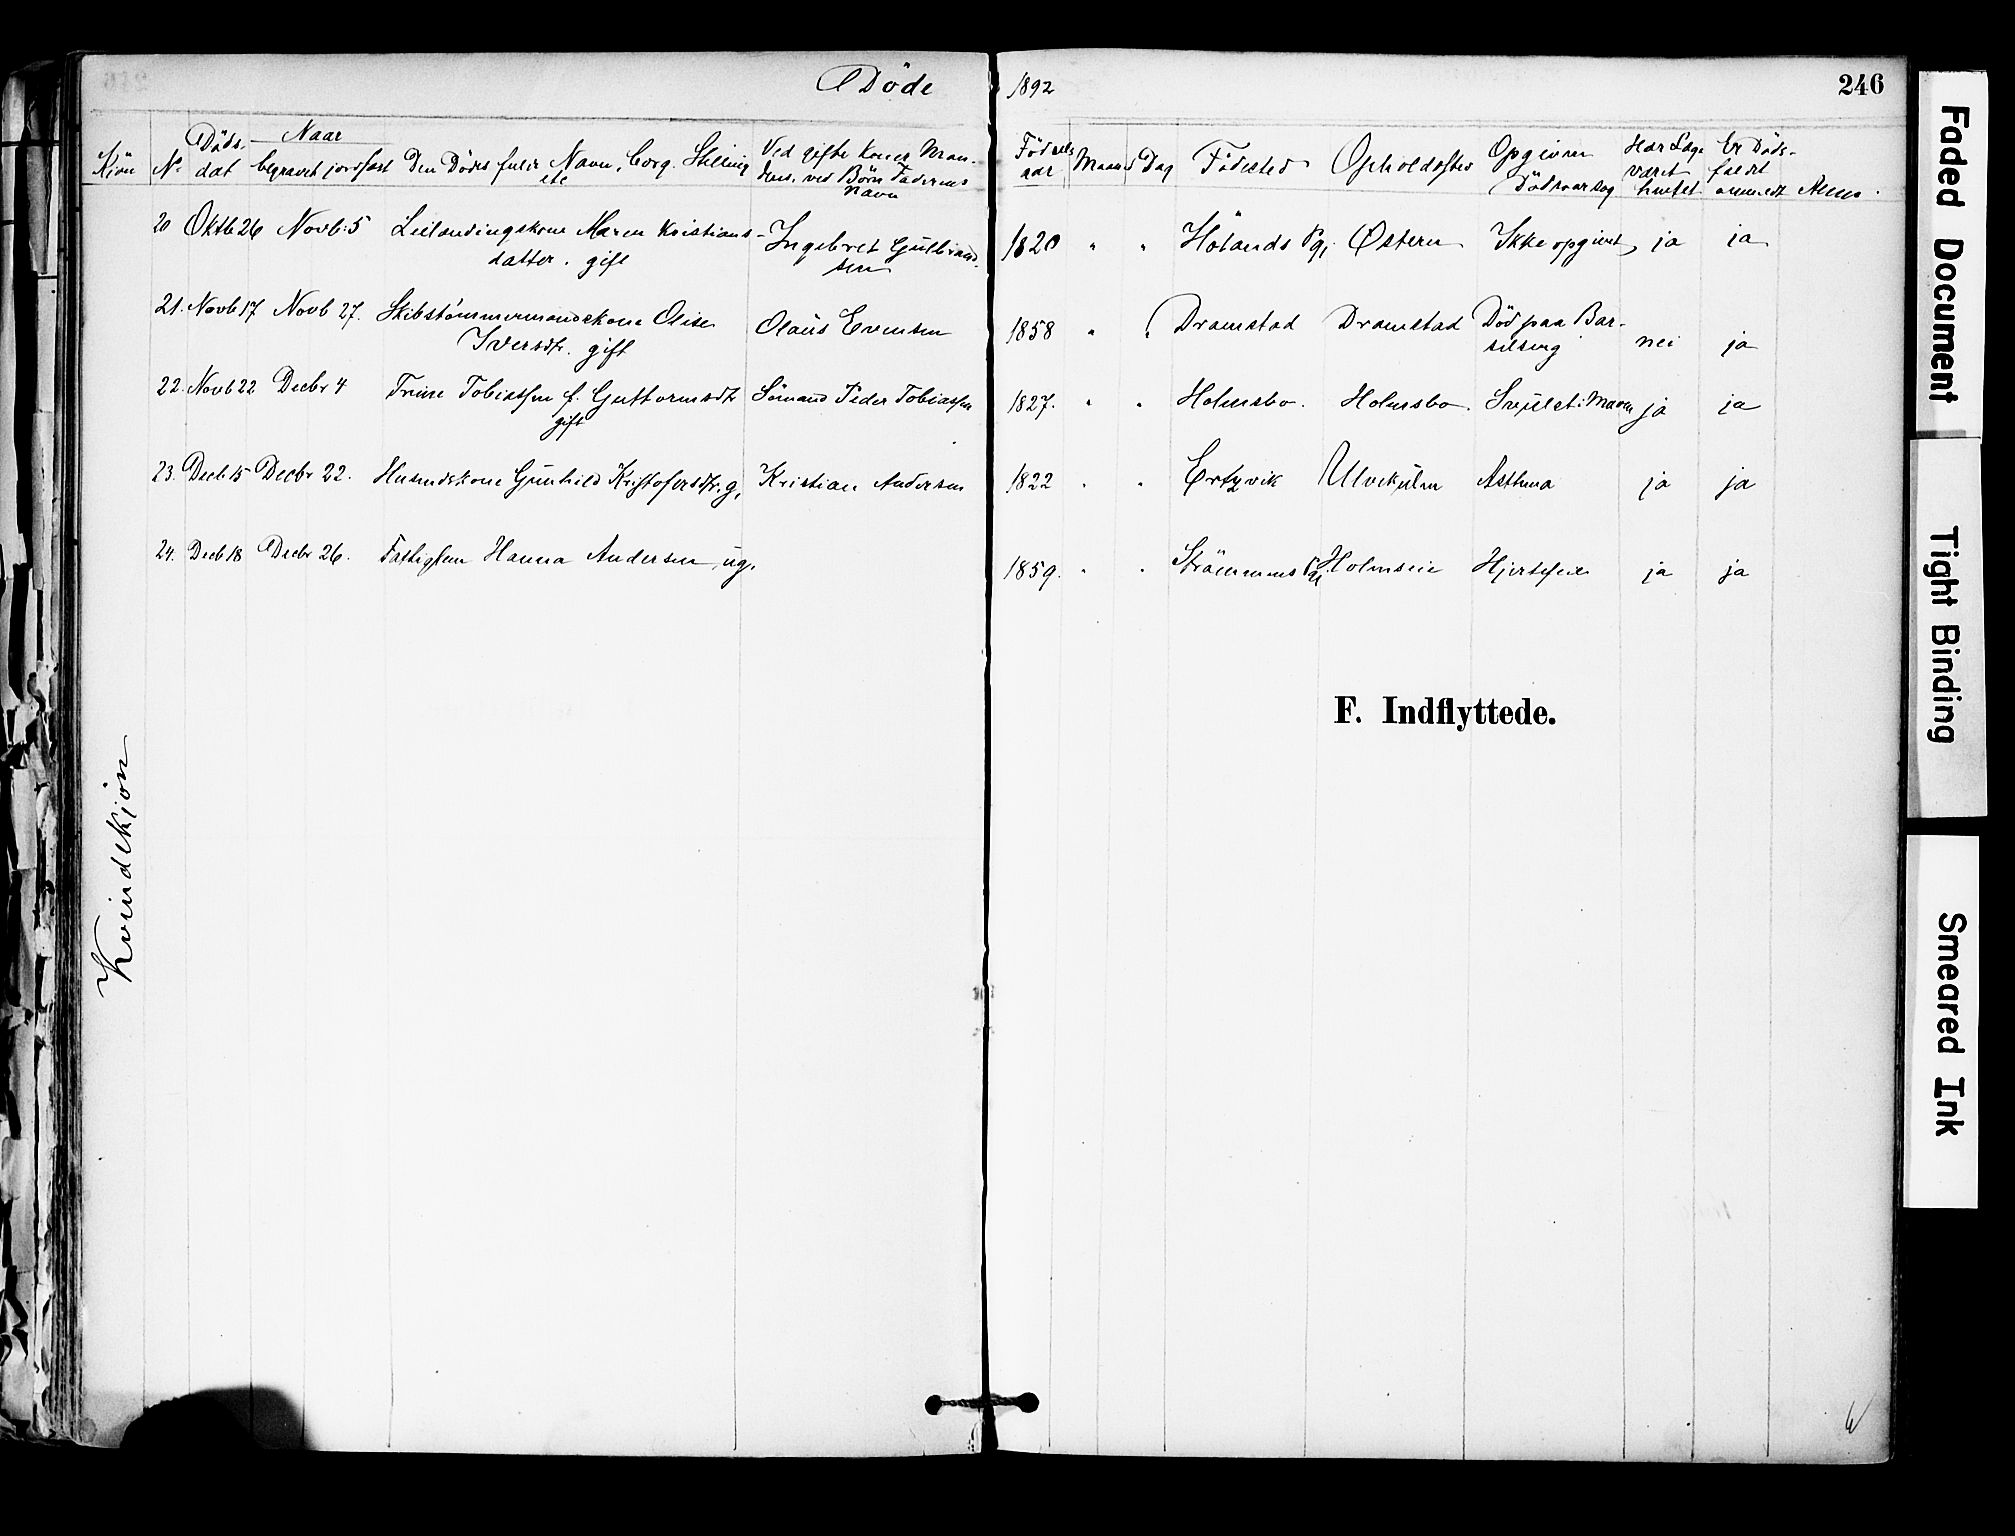 Döde 1892 246
Kjön No Döds- dat Naar begravet jordfæst Den Dödes fulde Navn, borg. Stilling etc Ved gifte Koner Man- dens, ved Börn Faderens Navn Födsels aar Maaned Dag Födested Opholdssted Opgiven Dödsaarsag Har Læge været hentet Er Döds- faldet anmeldt Anm.
20 Oktb 26 Novb: 5 Leilændingskone Maren Kristians- Ingebret Gulbrand- 1820 " " Hölands Pgj Østern Ikke opgivet, ja ja
datter. gift sen
21. Novb 17 Novb 27. Skibstömmermandskone Olise Olaüs Evensen 1858 " " Dramstad Dramstad Död paa Bar-
Iversdtr. gift selseng nei ja
22. Novb 22 Decbr 4 Trine Tobiassen f. Guttormsdtr Sömand Peder Tobiassen 1827. " " Holmsbo. Holmsbo. Svülst i Maven ja ja
gift
23. Decb 15 Decbr 22. Husmdskone Gunhild Kristofersdtr. g. Kristian Andersen 1822 " " Ertzvik Ulvekülm Asthma ja ja
24. Decb 18 Decbr 26. Fattiglem Hanna Andersen, ug. 1859. " " Strömmens Pgj Holmseie Hjertefeil ja ja
F. Indflyttede.
Kvindekjön
Faded Document
Tight Binding
Smeared Ink